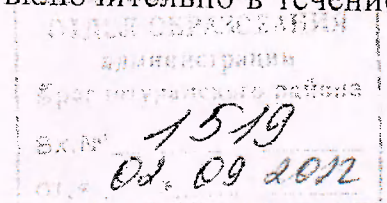 включительно в течение
ОТДЕЛ ОБРАЗОВАНИЯ
администрации
района
Вх.№ 1519
02. 09 2012